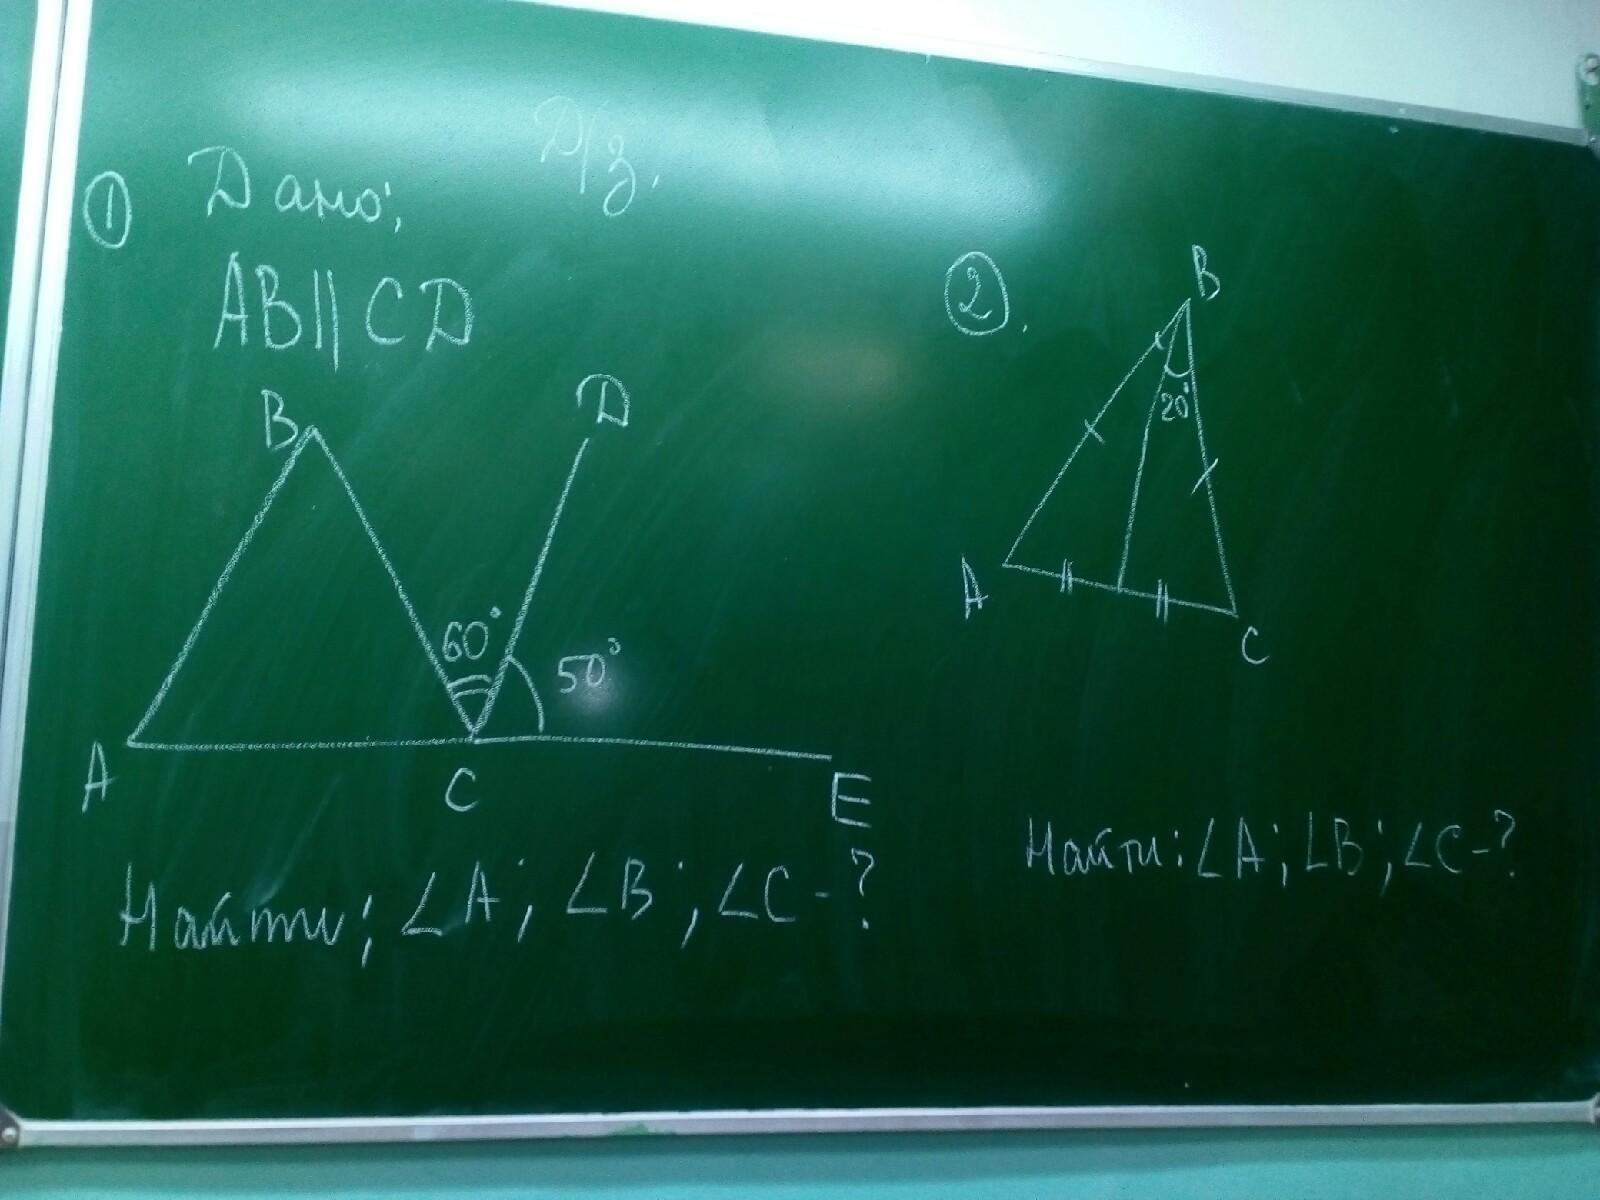 Д/з.
① Дано:
AB||CD
B
D
60°
50°
A
C
E
Найти: ∠A; ∠B; ∠C-?
②.
B
20°
A
C
Найти: ∠A; ∠B; ∠C-?